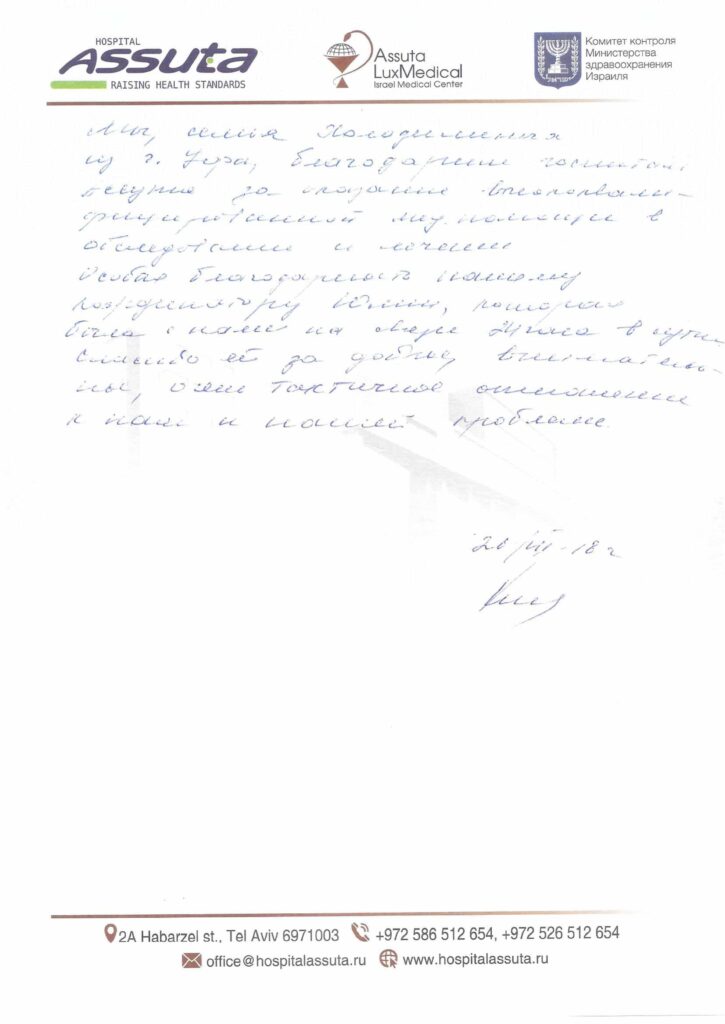 HOSPITAL
Assuta
RAISING HEALTH STANDARDS
Assuta
LuxMedical
Israel Medical Center
Комитет контроля
Министерства
здравоохранения
Израиля
Мы, семья
из г. Уфа, благодарим госпиталь
за оказание высококвали-
фицированной мед. помощи в
обследовании и лечении
Особая благодарность нашему
координатору Юлии, которая
была с нами на
спасибо ей за доброе, вниматель-
ны, очень тактичное отношение
к нам и нашей проблеме.
2A Habarzel st., Tel Aviv 6971003
+972 586 512 654, +972 526 512 654
office@hospitalassuta.ru
www.hospitalassuta.ru